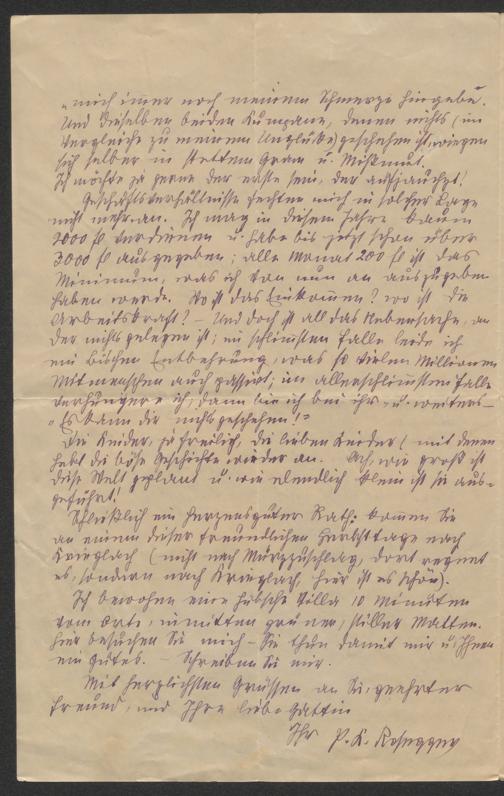 "mich immer noch meinem Schmerze hingebe.
Und dieselben beiden Kumpane, denen nichts (im
Vergleiche zu meinem Unglücke) geschehen ist, wiegen
sich selber in stettem Gram u. Mißmut.
Ich möchte ja gerne der erste sein, der aufjauchzt!
Geschäftsverhältnisse fechten mich in solcher Lage
nicht mehr an. Ich mag in diesem Jahre kaum
2000 fl verdienen u. habe bis jetzt schon über
3000 fl ausgegeben; alle Monat 200 fl ist das
Minimum, was ich von nun an auszugeben
haben werde. Wo ist das Einkommen? wo ist die
Arbeitskraft? – Und doch ist all das Nebensache, an
der nichts gelegen ist; im schlimsten Falle leide ich
ein bischen Entbehrung, was so vielen Millionen
Mitmenschen auch passirt; im allerschlimsten Falle
verhungere ich, dann bin ich bei ihr u. weiters –
"Es kann dir nichts geschehen!"
Die Kinder, ja freilich, die lieben Kinder! mit denen
hebt die böse Geschichte wieder an. Ach, wie groß ist
diese Welt geplant u. wie elendlich klein ist sie aus-
geführt!
Schließlich ein herzensguter Rath: kommen Sie
an einem dieser freundlichen Herbsttage nach
Krieglach (nicht nach Mürzzuschlag, dort regnet
es, sondern nach Krieglach, hier ist es schön).
Ich bewohne eine hübsche Villa 10 Minuten
vom Orte, inmitten grüner, stiller Matten.
Hier besuchen Sie mich – Sie thun damit mir u. Ihnen
ein Gutes. – Schreiben Sie mir.
Mit herzlichsten Grüssen an Sie, geehrter
Freund, und Ihre liebe Gattin
Ihr P. K. Rosegger